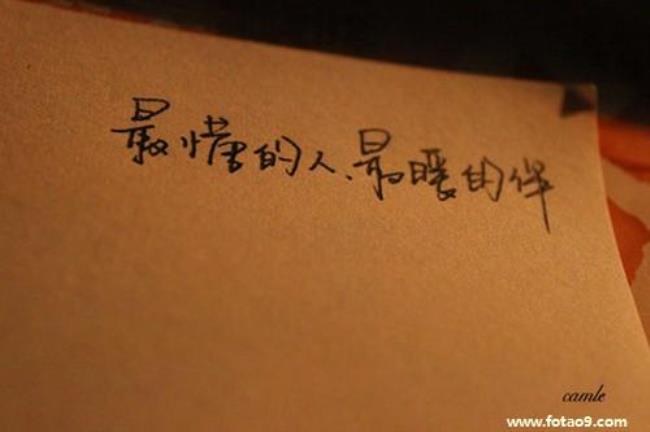 最懂的人、最暖的伴
camle
www.fotao9.com